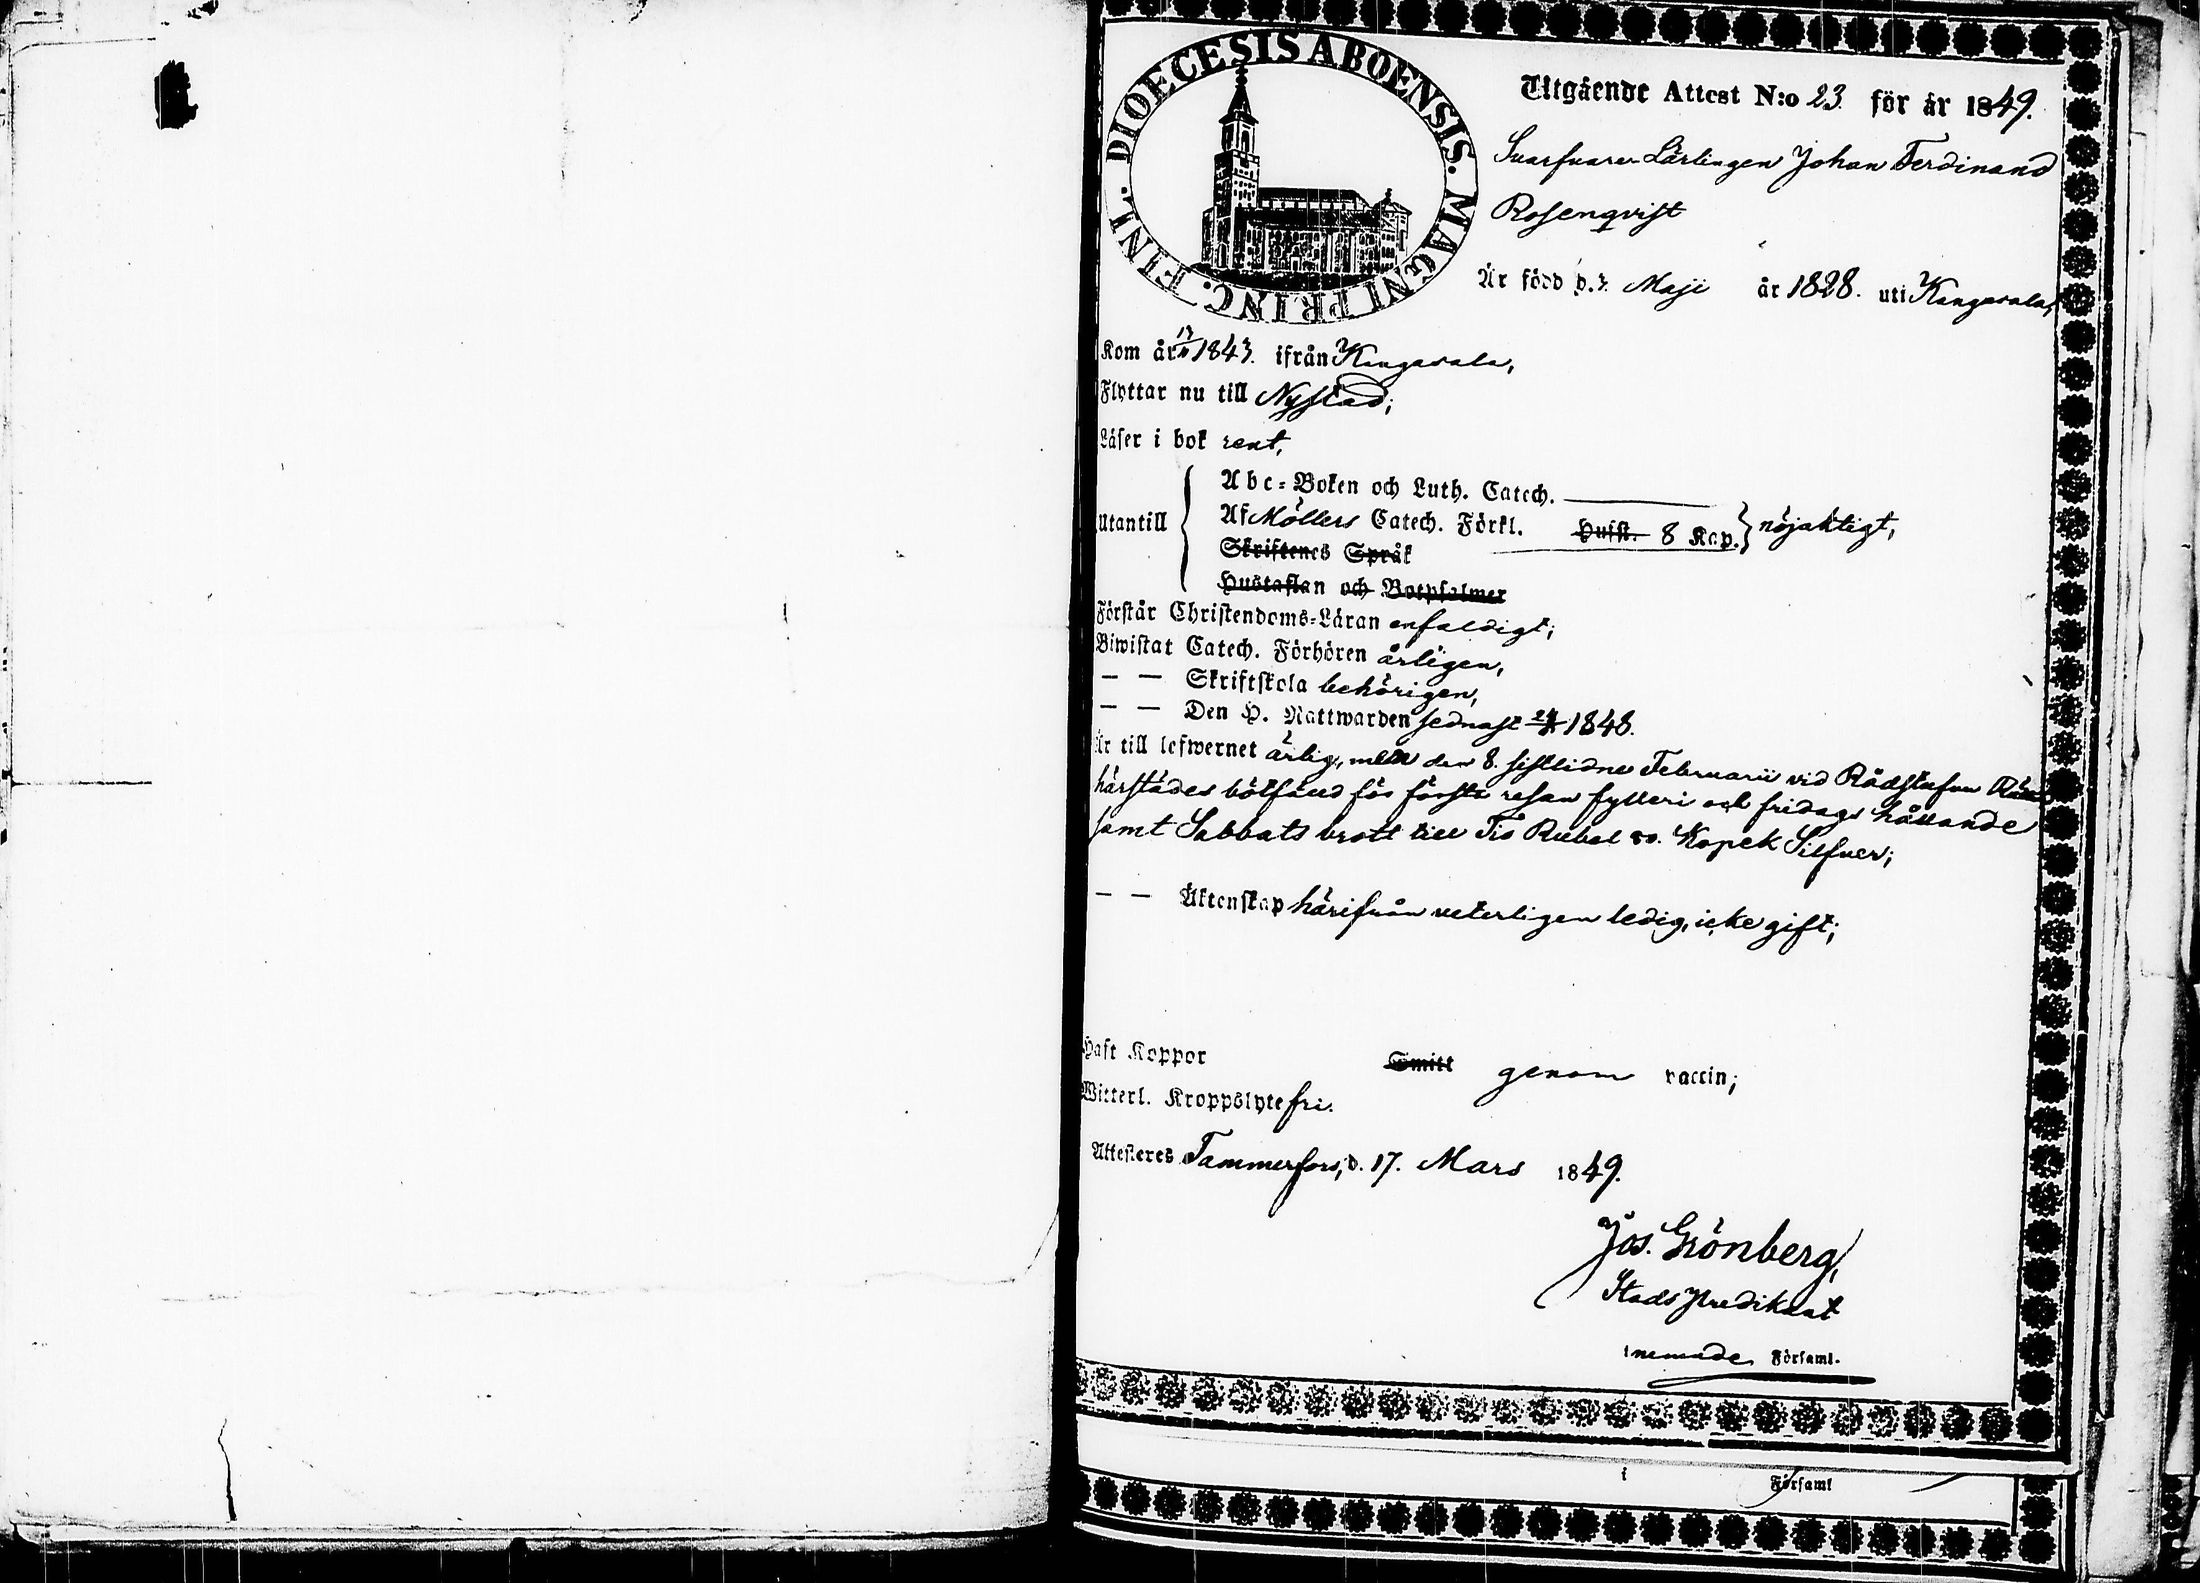 DIOECESIS ABOENSIS. MAGNI PRINC. FINL.
Utgående Attest N:o 23. för år 1849.
Svarfvare Lärlingen Johan Ferdinand
Rosenqvist
Är född d. 3. Maji år 1828. uti Kangasala,
Kom år 1843. ifrån Kangasala,
Flyttar nu till Nystad;
Läser i bok rent,
Abc-Boken och Luth. Catech.
Utantill Af Möllers Catech. Förkl. Hufst. 8 Kap. nöjaktigt,
Skriftenes Språk
Hustaflan och Botpsalmer
Förstår Christendoms-Läran enfaldigt;
Biwistat Catech. Förhören årligen,
— — Skriftskola behörigen,
— — Den H. Nattwarden sednast 1848.
Är till lefwernet ärlig, men den 8. sistlidne Februarii vid Rådstufvu
härstädes bötfäld för första resan fylleri och fridags hållande
samt Sabbats brott till Tio Rubel 80. Kopek Silfver;
— — Äktenskap härifrån veterligen ledig, icke gift;
Haft Koppor Smitt genom vaccin;
Witterl. Kroppslyte fri.
Attesteres Tammerfors, d. 17. Mars 1849.
Jos. Grönberg,
Stads Predikant
i nemnde Församl.
i Församl